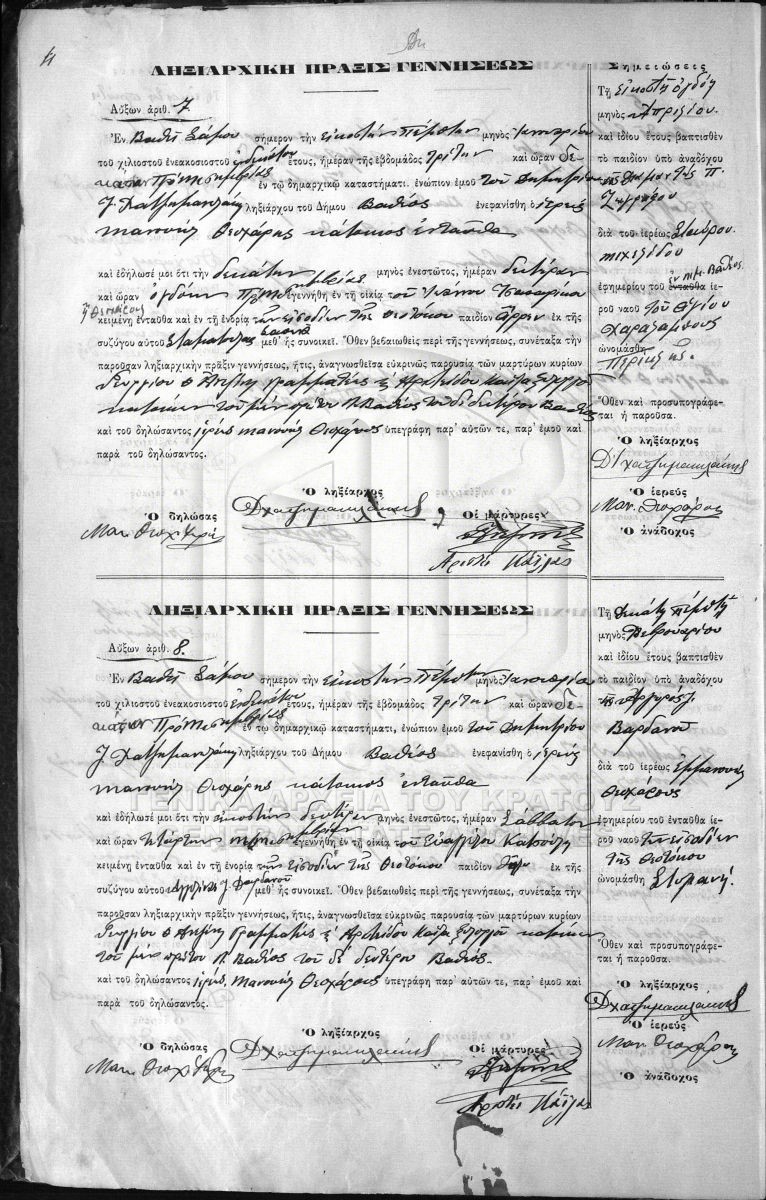 ΛΗΞΙΑΡΧΙΚΗ ΠΡΑΞΙΣ ΓΕΝΝΗΣΕΩΣ
Αὔξων ἀριθ. 7
Ἐν Βαθεῖ Σάμου σήμερον τὴν εἰκοστὴν πέμπτην μηνὸς Ἰανουαρίου
τοῦ χιλιοστοῦ ἐνεακοσιοστοῦ ἑνδεκάτου ἔτους, ἡμέραν τῆς ἑβδομάδος τρίτην καὶ ὥραν δε-
κάτην πρὸ μεσημβρίας ἐν τῷ δημαρχικῷ καταστήματι, ἐνώπιον ἐμοῦ τοῦ Δημητρίου
Ι. Χατζημανωλάκη ληξιάρχου τοῦ Δήμου Βαθέος ἐνεφανίσθη ὁ ἱερεὺς
Μανουὴλ Θεοχάρης κάτοικος ἐνταῦθα
καὶ ἐδήλωσέ μοι ὅτι τὴν δεκάτην μηνὸς ἐνεστῶτος, ἡμέραν δευτέραν
καὶ ὥραν ὀγδόην πρὸ μεσημβρίας ἐγεννήθη ἐν τῇ οἰκίᾳ τοῦ
κειμένῃ ἐνταῦθα καὶ ἐν τῇ ἐνορίᾳ τῶν Εἰσοδίων τῆς Θεοτόκου παιδίον ἄρρεν ἐκ τῆς
συζύγου αὐτοῦ Σταματούλας μεθ᾽ ἧς συνοικεῖ. Ὅθεν βεβαιωθεὶς περὶ τῆς γεννήσεως, συνέταξα τὴν
παροῦσαν ληξιαρχικὴν πρᾶξιν γεννήσεως, ἥτις, ἀναγνωσθεῖσα εὐκρινῶς παρουσίᾳ τῶν μαρτύρων κυρίων
Γεωργίου γραμματέως & Ἀριστείδου Κάτλα
κατοίκων τοῦ μὲν πρώτου Λ. Βαθέος τοῦ δὲ δευτέρου Βαθέος
καὶ τοῦ δηλώσαντος ἱερέως Μανουὴλ Θεοχάρους ὑπεγράφη παρ᾽ αὐτῶν τε, παρ᾽ ἐμοῦ καὶ
παρὰ τοῦ δηλώσαντος.
Ὁ δηλώσας
Ὁ ληξίαρχος
Οἱ μάρτυρες
Μαν. Θεοχάρης
Δ Χατζημανωλάκης
Ἀριστ. Κάτλας
Σημειώσεις
Τῇ εἰκοστῇ ὀγδόῃ
μηνὸς Ἀπριλίου
καὶ ἰδίου ἔτους βαπτισθὲν
τὸ παιδίον ὑπὸ ἀναδόχου
Ζωγράφου
διὰ τοῦ ἱερέως Σταύρου
Μιχελίδου
ἐφημερίου τοῦ ἐνταῦθα ἱε-
ροῦ ναοῦ τοῦ Ἁγίου
Χαραλάμπους
ὠνομάσθη
Περικλῆς.
Ὅθεν καὶ προσυπογράφε-
ται ἡ παροῦσα.
Ὁ ληξίαρχος
Δ Ι Χατζημανωλάκης
Ὁ ἱερεύς
Μαν. Θεοχάρης
Ὁ ἀνάδοχος
ΛΗΞΙΑΡΧΙΚΗ ΠΡΑΞΙΣ ΓΕΝΝΗΣΕΩΣ
Αὔξων ἀριθ. 8.
Ἐν Βαθεῖ Σάμου σήμερον τὴν εἰκοστὴν πέμπτην μηνὸς Ἰανουαρίου
τοῦ χιλιοστοῦ ἐνεακοσιοστοῦ ἑνδεκάτου ἔτους, ἡμέραν τῆς ἑβδομάδος τρίτην καὶ ὥραν δε-
κάτην πρὸ μεσημβρίας ἐν τῷ δημαρχικῷ καταστήματι, ἐνώπιον ἐμοῦ τοῦ Δημητρίου
Ι. Χατζημανωλάκη ληξιάρχου τοῦ Δήμου Βαθέος ἐνεφανίσθη ὁ ἱερεὺς
Μανουὴλ Θεοχάρης κάτοικος ἐνταῦθα
ΓΕΝΙΚΑ ΑΡΧΕΙΑ ΤΟΥ ΚΡΑΤΟΥΣ
καὶ ἐδήλωσέ μοι ὅτι τὴν εἰκοστὴν δευτέραν μηνὸς ἐνεστῶτος, ἡμέραν Σάββατον
καὶ ὥραν τετάρτην ἐγεννήθη ἐν τῇ οἰκίᾳ τοῦ Εὐαγγέλου
κειμένῃ ἐνταῦθα καὶ ἐν τῇ ἐνορίᾳ τῶν Εἰσοδίων τῆς Θεοτόκου παιδίον θῆλυ ἐκ τῆς
συζύγου αὐτοῦ μεθ᾽ ἧς συνοικεῖ. Ὅθεν βεβαιωθεὶς περὶ τῆς γεννήσεως, συνέταξα τὴν
παροῦσαν ληξιαρχικὴν πρᾶξιν γεννήσεως, ἥτις, ἀναγνωσθεῖσα εὐκρινῶς παρουσίᾳ τῶν μαρτύρων κυρίων
Γεωργίου γραμματέως & Ἀριστείδου Κάτλα κατοίκων
τοῦ μὲν πρώτου Λ. Βαθέος τοῦ δὲ δευτέρου Βαθέος
καὶ τοῦ δηλώσαντος ἱερέως Μανουὴλ Θεοχάρους ὑπεγράφη παρ᾽ αὐτῶν τε, παρ᾽ ἐμοῦ καὶ
παρὰ τοῦ δηλώσαντος.
Ὁ δηλώσας
Ὁ ληξίαρχος
Οἱ μάρτυρες
Μαν. Θεοχάρης
Δ Χατζημανωλάκης
Ἀριστ. Κάτλας
Τῇ δεκάτῃ πέμπτῃ
μηνὸς Φεβρουαρίου
καὶ ἰδίου ἔτους βαπτισθὲν
τὸ παιδίον ὑπὸ ἀναδόχου
Βαρδανοῦ
διὰ τοῦ ἱερέως Ἐμμανουὴλ
Θεοχάρους
ἐφημερίου τοῦ ἐνταῦθα ἱε-
ροῦ ναοῦ τῶν Εἰσοδίων
τῆς Θεοτόκου
ὠνομάσθη
Ὅθεν καὶ προσυπογράφε-
ται ἡ παροῦσα.
Ὁ ληξίαρχος
Δ Χατζημανωλάκης
Ὁ ἱερεύς
Μαν. Θεοχάρης
Ὁ ἀνάδοχος